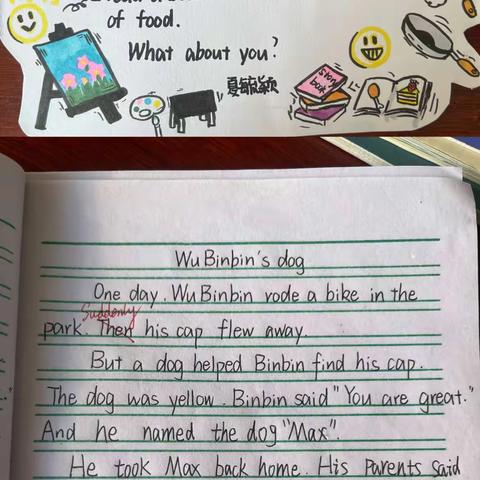 of food.
What about you?
夏毓颖
story book
Wu Binbin's dog
One day. Wu Binbin rode a bike in the
Suddenly
park. Then his cap flew away.
But a dog helped Binbin find his cap.
The dog was yellow. Binbin said "You are great."
And he named the dog "Max".
He took Max back home. His parents said